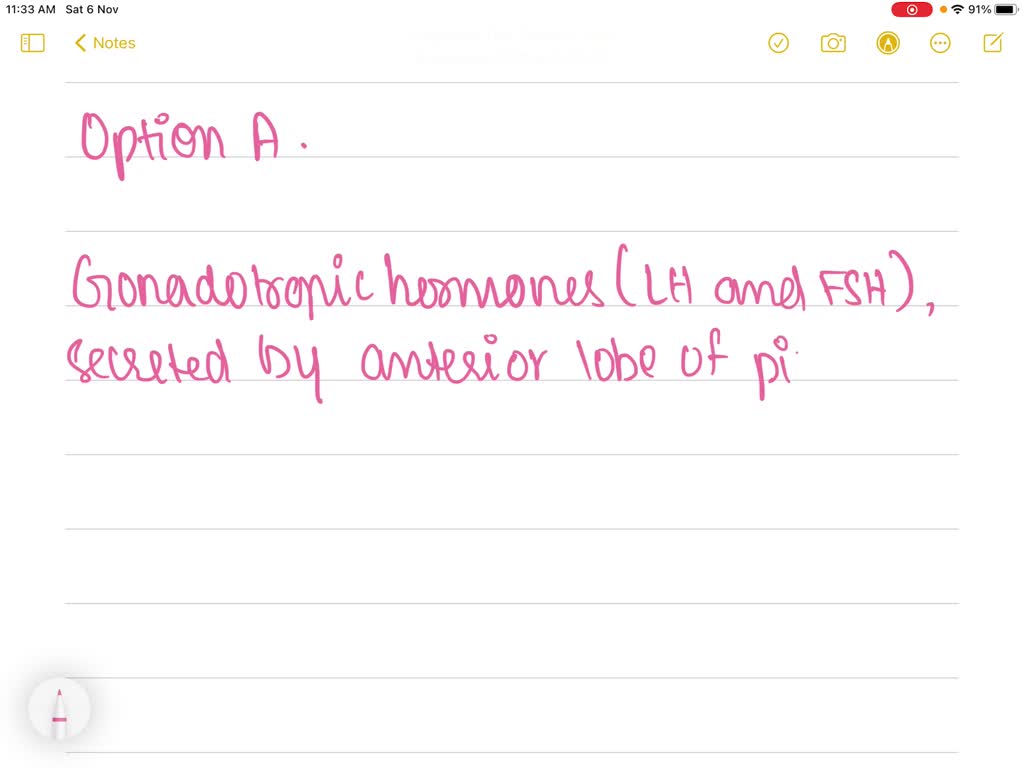 11:33 AM Sat 6 Nov 91%
Notes
Option A.
Gonadotropic hormones (LH and FSH),
secreted by anterior lobe of pi